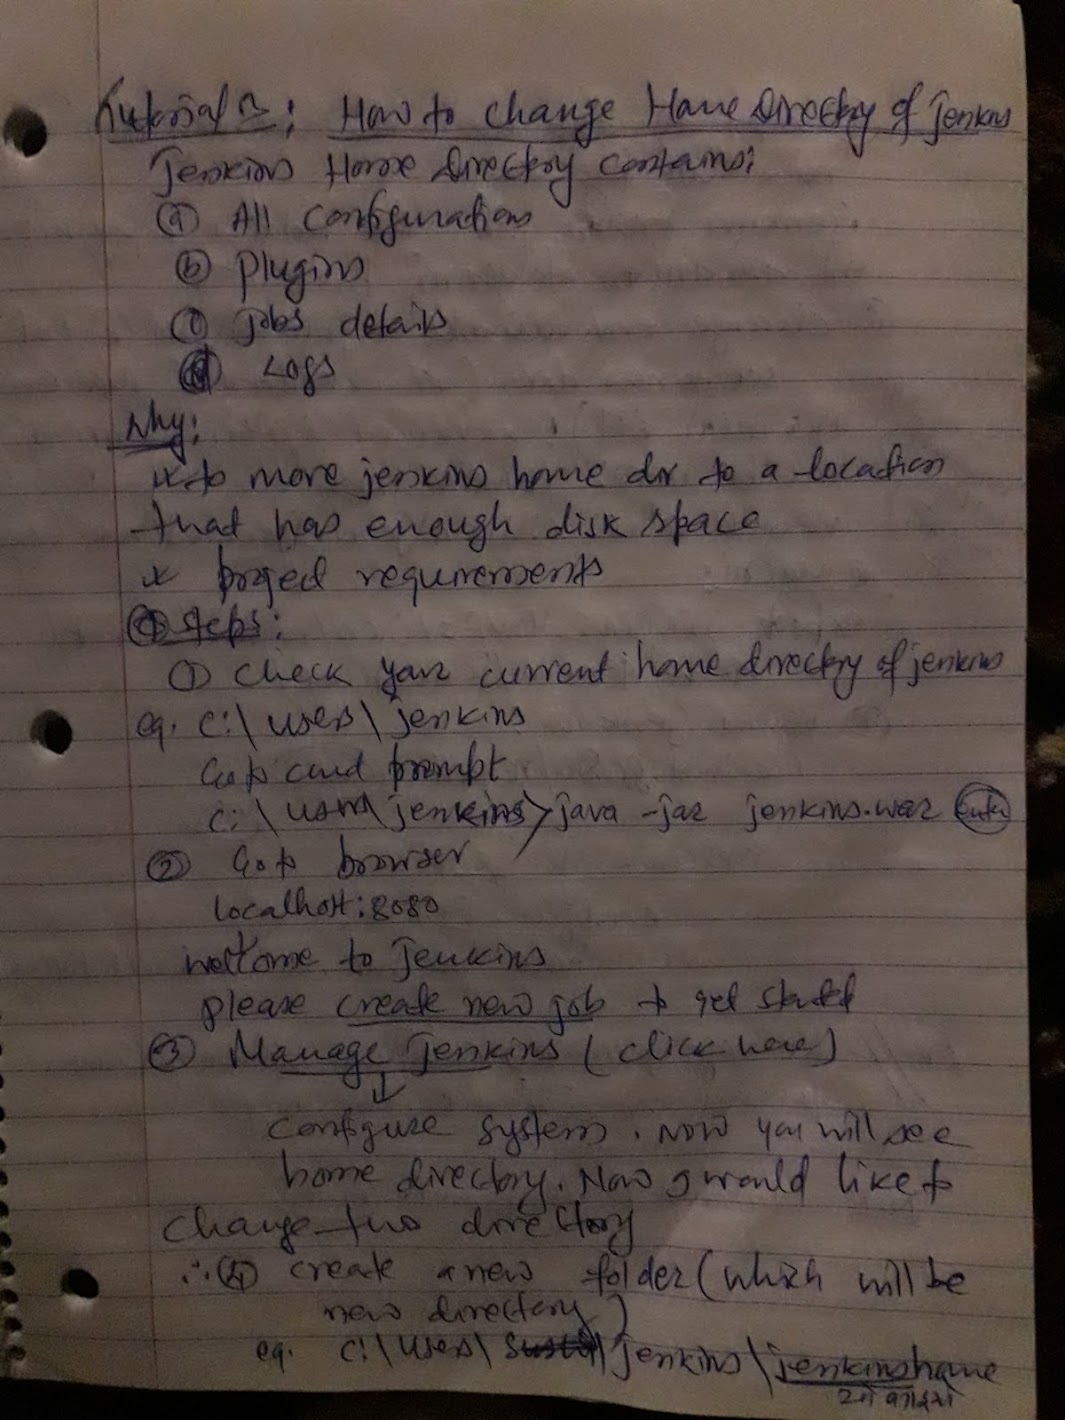 Tutorial 3: How to change Home Directory of Jenkins
Jenkins Home Directory contains:
(a) All configurations
(b) plugins
(c) jobs details
(d) Logs
Why:
* to move jenkins home dir to a location
that has enough disk space
* project requirements
steps:
(1) check your current home directory of jenkins
eg. C:\users\jenkins
Go to cmd prompt
C:\users\jenkins>java -jar jenkins.war (Enter)
(2) Go to browser
localhost:8080
welcome to Jenkins
please create new job to get started
(3) Manage Jenkins (click here)
↓
configure system. Now you will see
home directory. Now I would like to
change this directory
∴ (4) create a new folder (which will be
new directory)
eg. C:\users\jenkins\jenkinshome